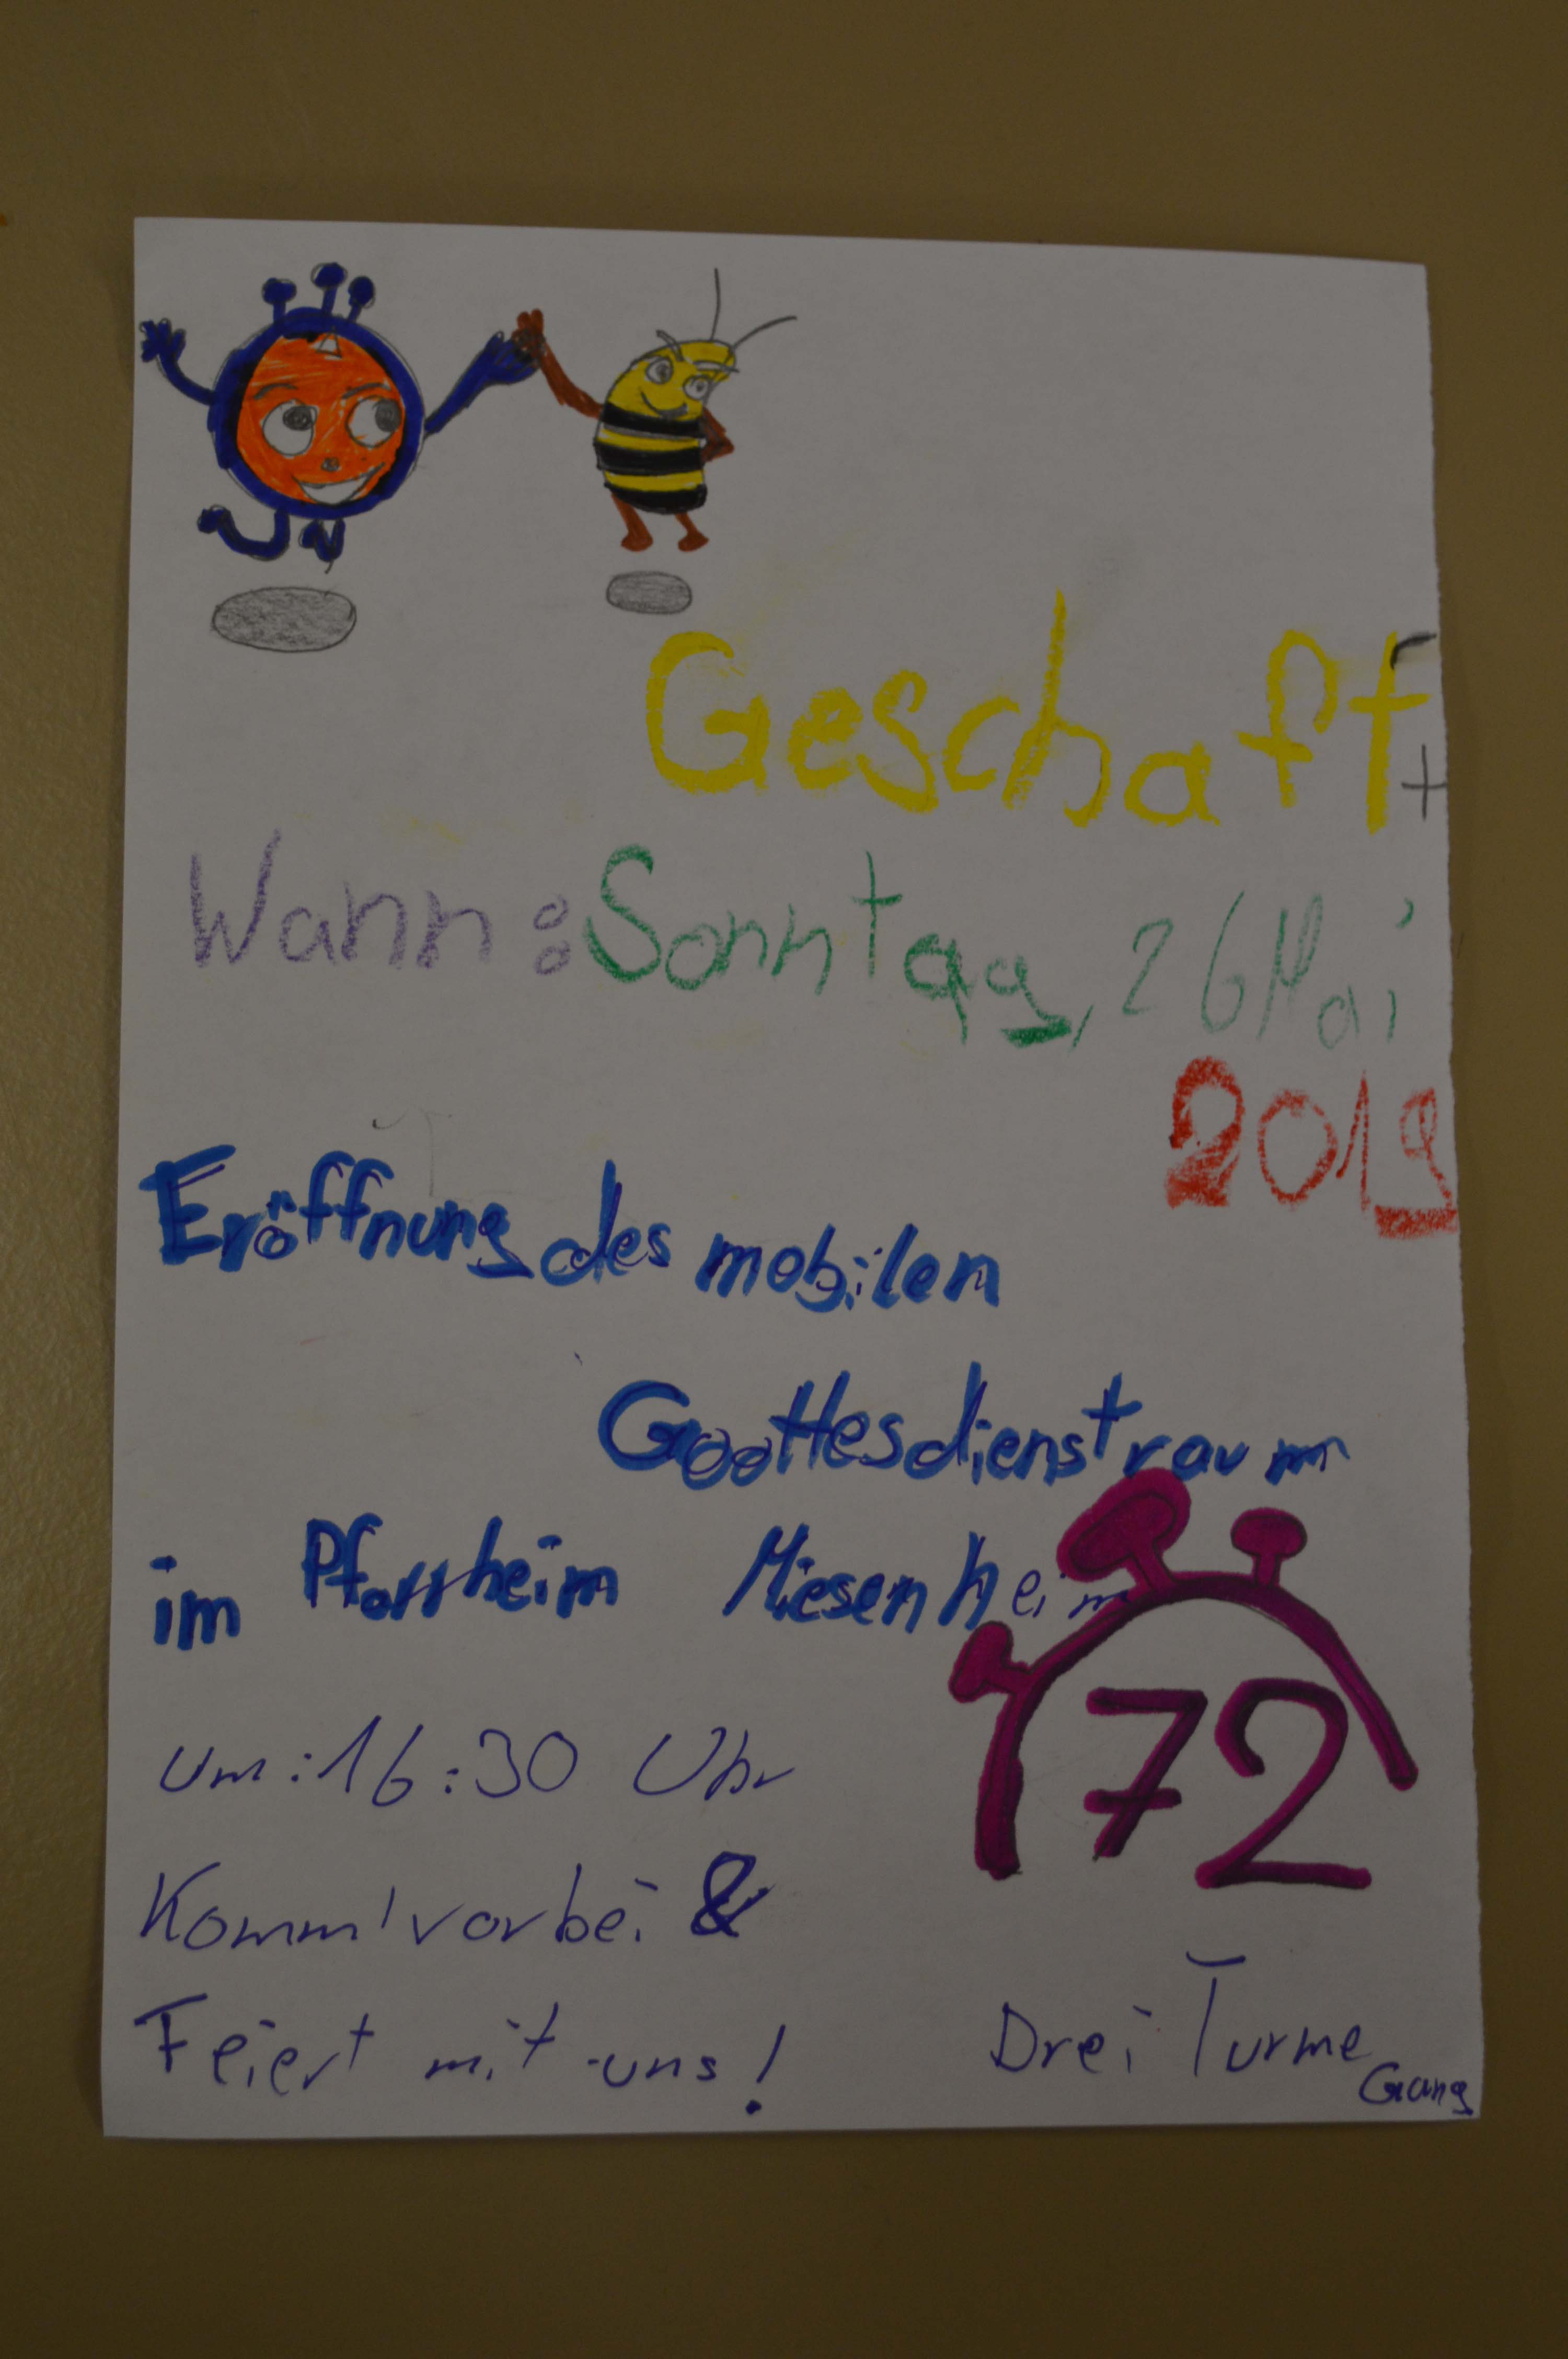 Geschafft
Wann: Sonntag, 26 Mai
2019
Eröffnung des mobilen
Gottesdienstraum
im Pfarrheim Miesenheim
72
um: 16:30 Uhr
Komm' vorbei &
Feiert mit uns!
Drei Türme
Gang